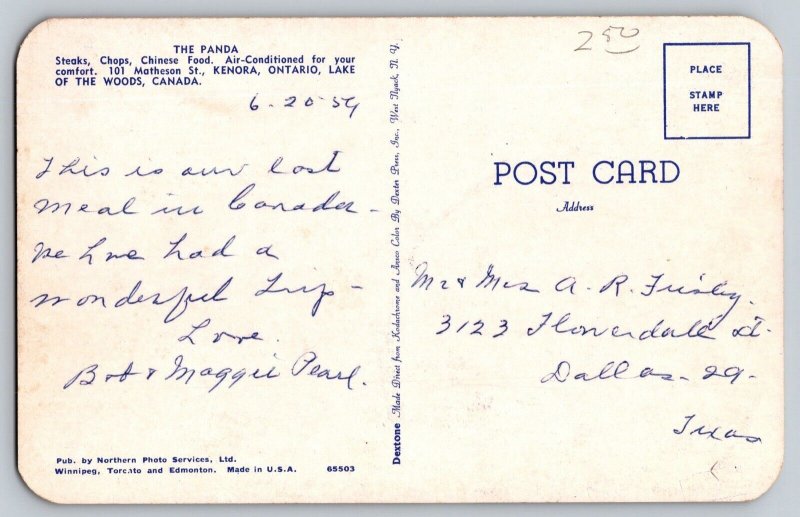 THE PANDA
Steaks, Chops, Chinese Food. Air-Conditioned for your
comfort. 101 Matheson St., KENORA, ONTARIO, LAKE
OF THE WOODS, CANADA.
6-20-59
This is our last
meal in Canada-
We have had a
wonderful trip-
Love.
Bob & Maggie Pearl.
Pub. by Northern Photo Services, Ltd.
Winnipeg, Toronto and Edmonton. Made in U.S.A. 65503
Dextone Made Direct from Kodachrome and Ansco Color By Dexter Press, Inc., West Nyack, N. Y.
2 50
PLACE
STAMP
HERE
POST CARD
Address
Mr & Mrs A. R. Frisby.
3123 Flowerdale St-
Dallas-29-
Texas